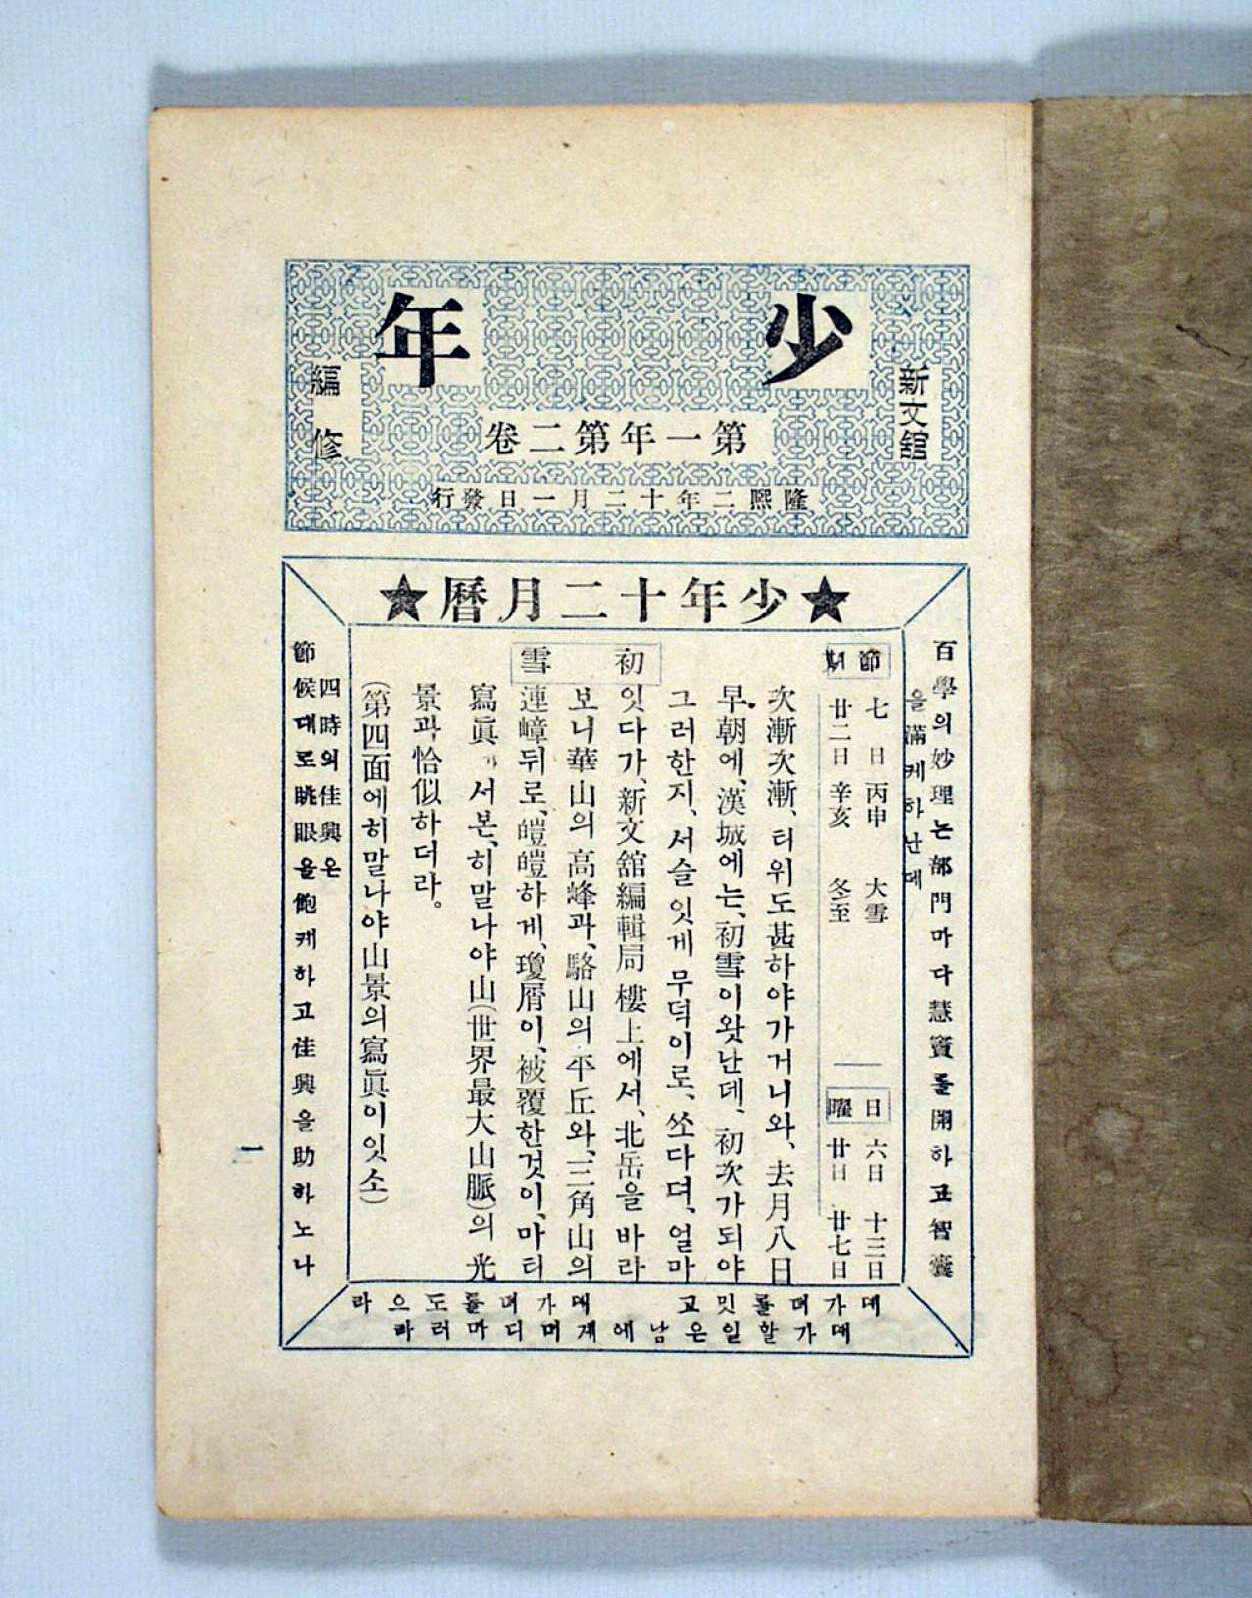 少年
新文舘
編修
第一年第二卷
隆熙二年十二月一日發行
★少年十二月曆★
百學의妙理는部門마다慧竇를開하고智囊
을滿케하난데
節期
七日丙申 大雪
廿二日辛亥 冬至
日曜
六日 十三日
廿日 廿七日
初雪
次漸次漸、터위도甚하야가거니와、去月八日
早朝에、漢城에는、初雪이왓난데、初次가되야
그러한지、서슬잇게무덕이로、쏘다뎌、얼마
잇다가、新文舘編輯局樓上에서、北岳을바라
보니華山의高峰과、駱山의平丘와、三角山의
連嶂뒤로、皚皚하게、瓊屑이、被覆한것이、마티
寫眞에서본、히말나야山(世界最大山脈)의光
景과恰似하더라。
(第四面에히말나야山景의寫眞이잇소)
四時의佳興은
節候대로眺眼을飽케하고佳興을助하노나
데가뎌를밋고 데가뎌를도으라
데가할일은남에게머디마러라
一